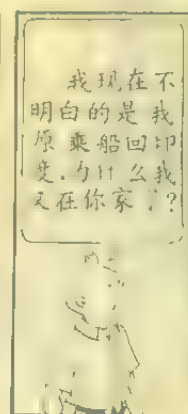 我现在不
明白的是我
原 乘船回印
度，为什么我
又在你家 ？